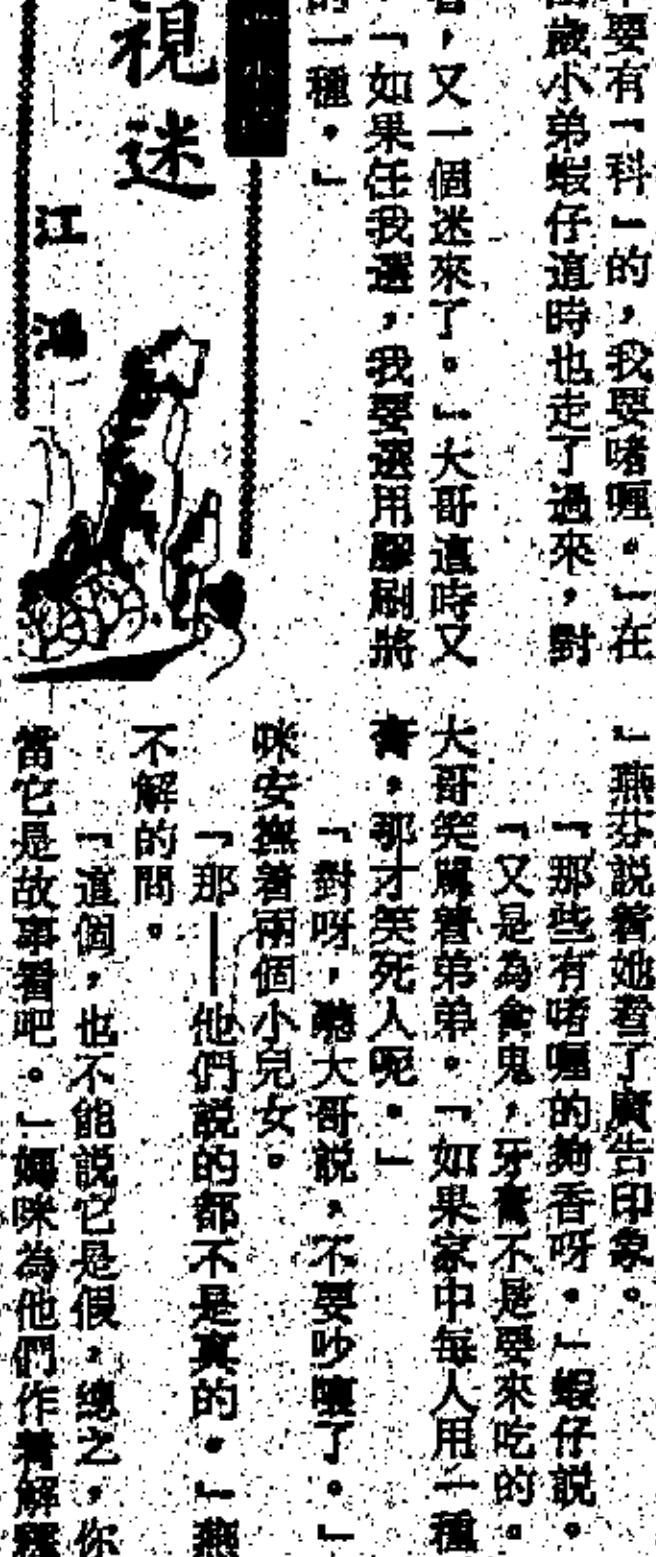 要有「科」的，我要啫喱。」在
歲小弟蝦仔這時也走了過來，對
，又一個迷來了。」大哥這時又
「如果任我選，我要選用膠刷將
的一種。」
視迷
江鴻
」燕芬説着她看了廣告印象。
「那些有啫喱的夠香呀。」蝦仔説。
「又是為食鬼，牙膏不是要來吃的。
大哥笑罵着弟弟。「如果家中每人用一種
膏，那才笑死人呢。」
「對呀，聽大哥説，不要吵嚷了。」
咪安撫着兩個小兒女。
「那——他們説的都不是真的。」燕
不解的問。
「這個，也不能説它是假，總之，你
當它是故事看吧。」媽咪為他們作着解釋